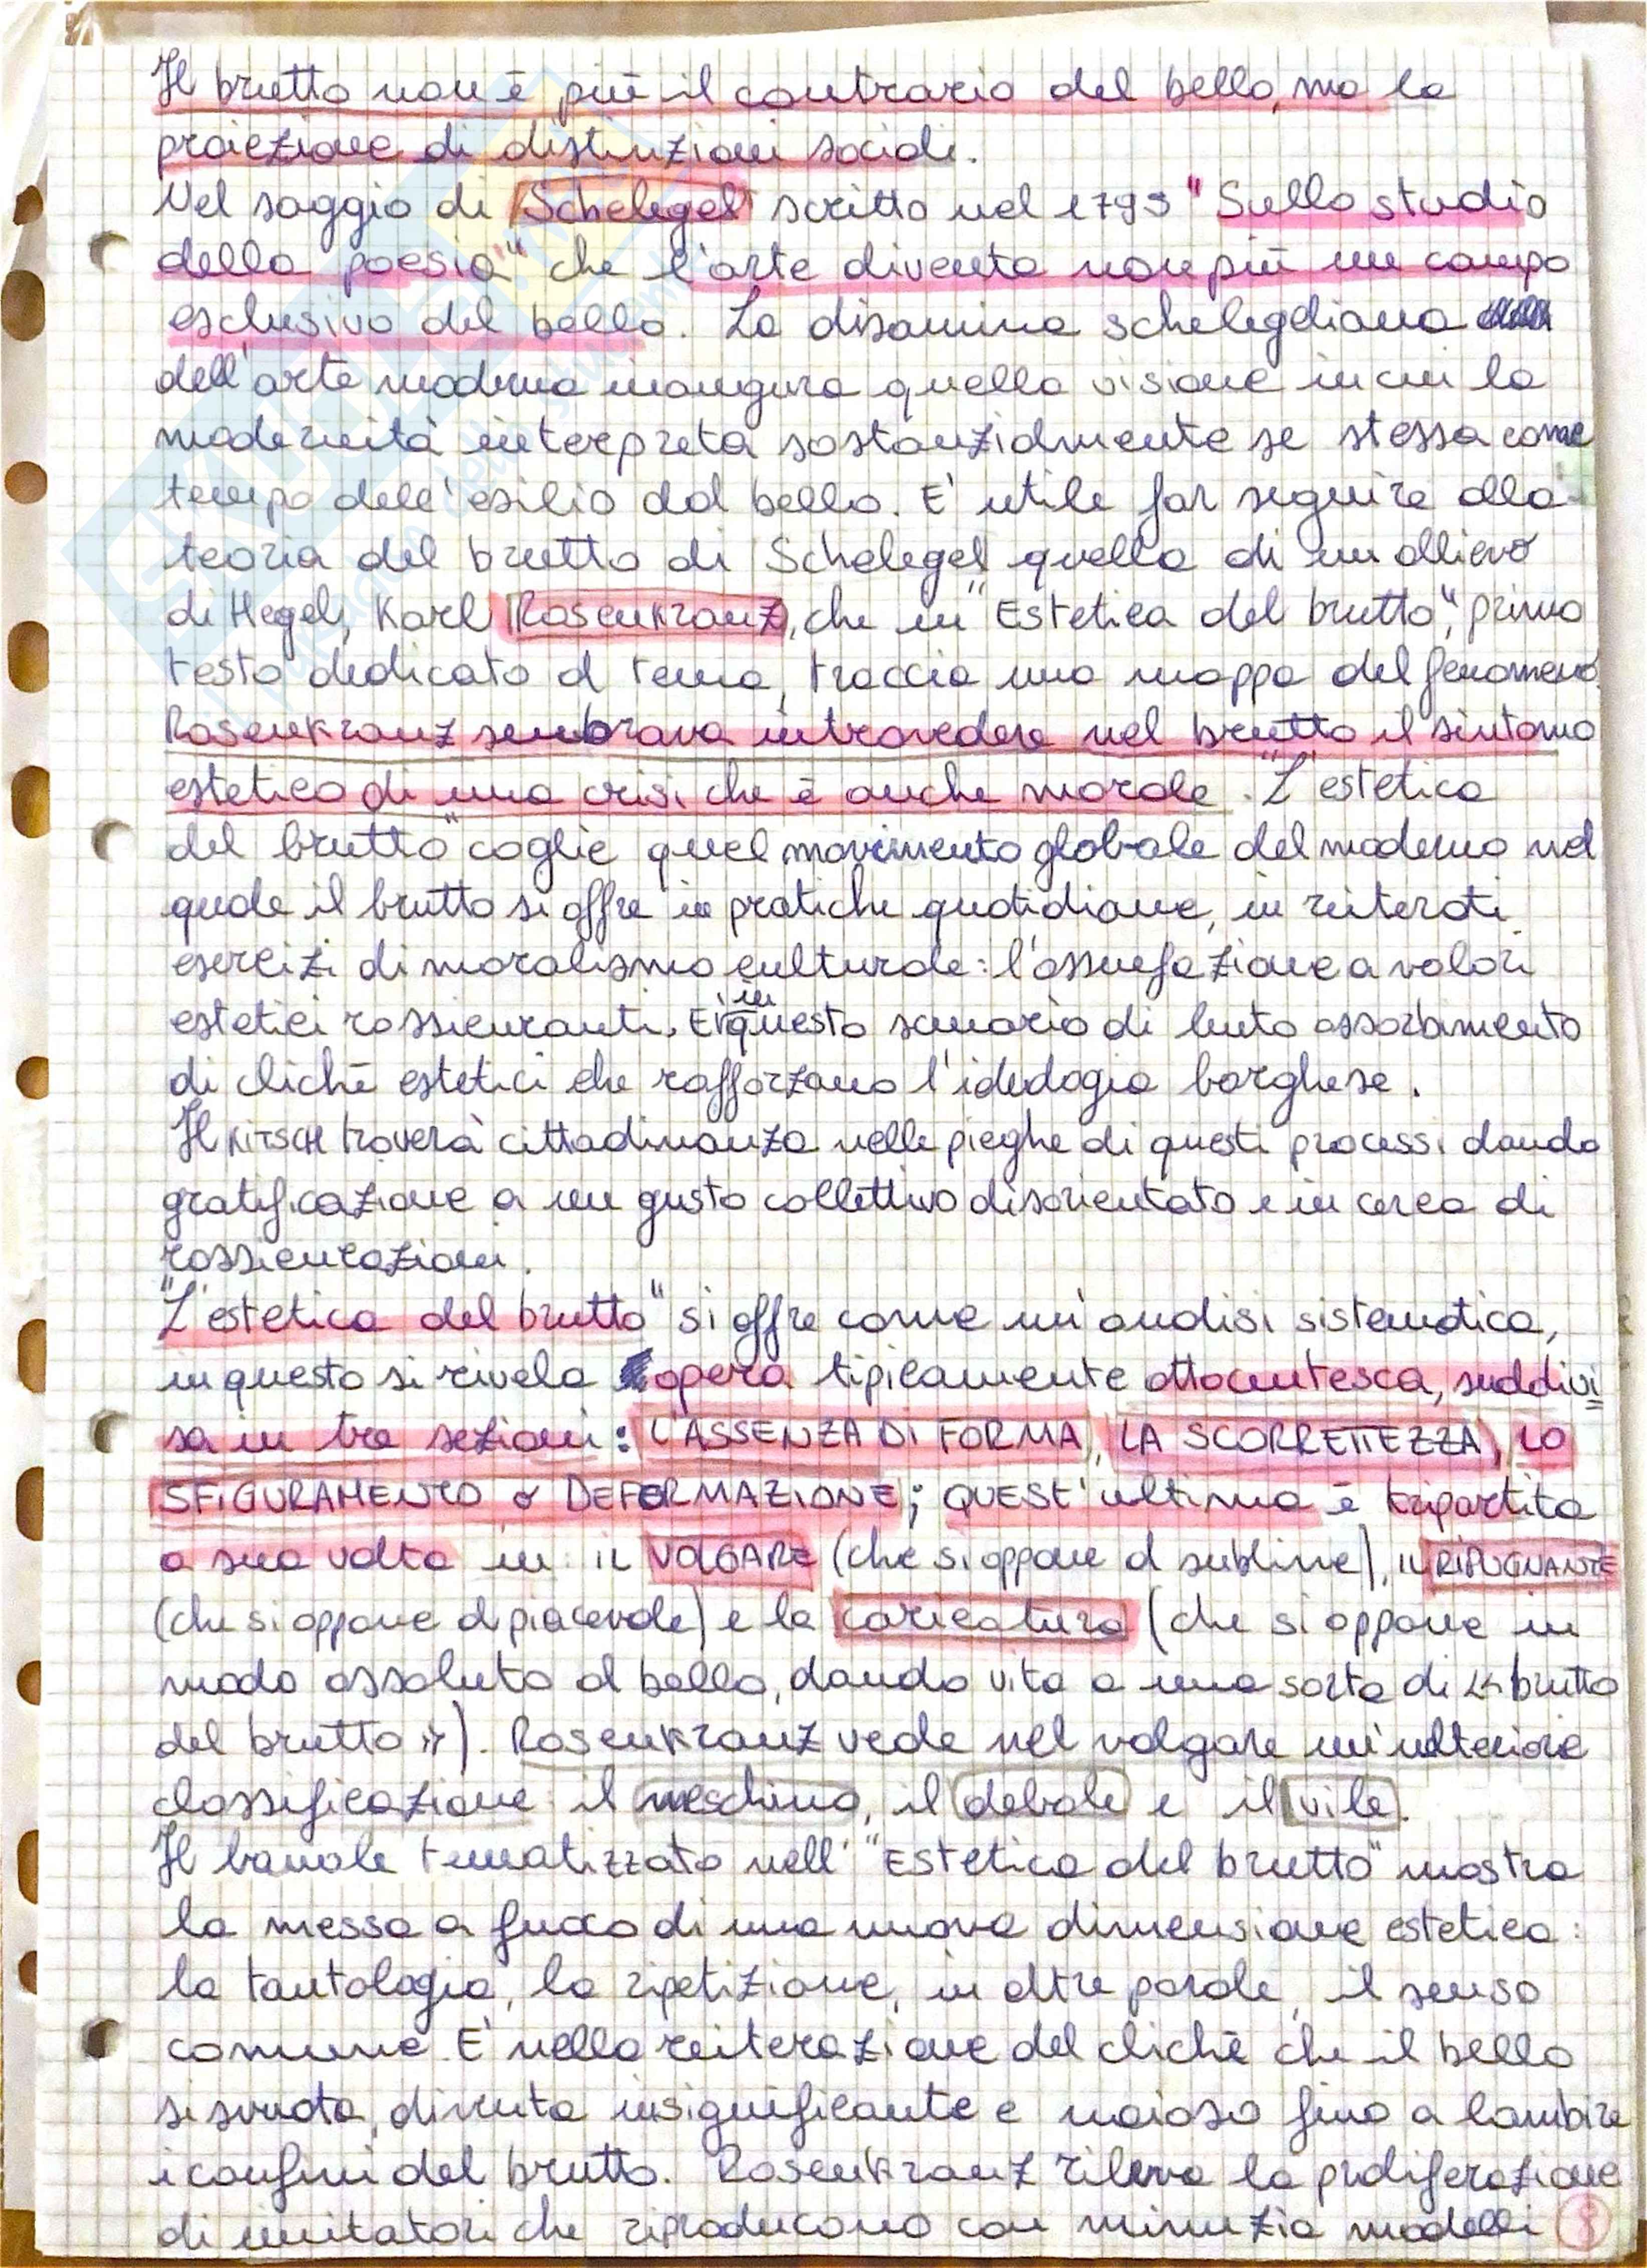 Il brutto non è più il contrario del bello, ma la
proiezione di distinzioni sociali.
Nel saggio di Schelegel scritto nel 1795 "Sullo studio
della poesia" che l'arte diventa non più un campo
esclusivo del bello. La disamina schelegeliana
dell'arte moderna inaugura quella visione in cui la
modernità interpreta sostanzialmente se stessa come
tempo dell'esilio dal bello. E' utile far seguire alla
teoria del brutto di Schelegel quella di un allievo
di Hegel, Karl Rosenkranz, che in "Estetica del brutto", primo
testo dedicato al tema, traccia una mappa del fenomeno.
Rosenkranz sembrava intravedere nel brutto il sintomo
estetico di una crisi che è anche morale. "L'estetica
del brutto" coglie quel movimento globale del moderno nel
quale il brutto si offre in pratiche quotidiane, in reiterati
esercizi di moralismo culturale: l'assuefazione a valori
estetici rassicuranti. E' in questo scenario di lento assorbimento
di cliché estetici che rafforzano l'ideologia borghese.
Il KITSCH troverà cittadinanza nelle pieghe di questi processi dando
gratificazione a un gusto collettivo disorientato e in cerca di
rassicurazioni.
"L'estetica del brutto" si offre come un'analisi sistematica,
in questo si rivela opera tipicamente ottocentesca, suddivi
sa in tre sezioni: L'ASSENZA DI FORMA, LA SCORRETTEZZA, LO
SFIGURAMENTO o DEFORMAZIONE; QUEST'ultima è tripartita
a sua volta in: IL VOLGARE (che si oppone al sublime), IL RIPUGNANTE
(che si oppone al piacevole) e la caricatura (che si oppone in
modo assoluto al bello, dando vita a una sorta di << brutto
del brutto >>). Rosenkranz vede nel volgare un'ulteriore
classificazione: il meschino, il debole e il vile.
Il banale tematizzato nell' "Estetica del brutto" mostra
la messa a fuoco di una nuova dimensione estetica:
la tautologia, la ripetizione, in altre parole, il senso
comune. E' nella reiterazione del cliché che il bello
si svuota, diventa insignificante e noioso fino a lambire
i confini del brutto. Rosenkranz rileva la proliferazione
di imitatori che riproducono con minuzia modelli 8